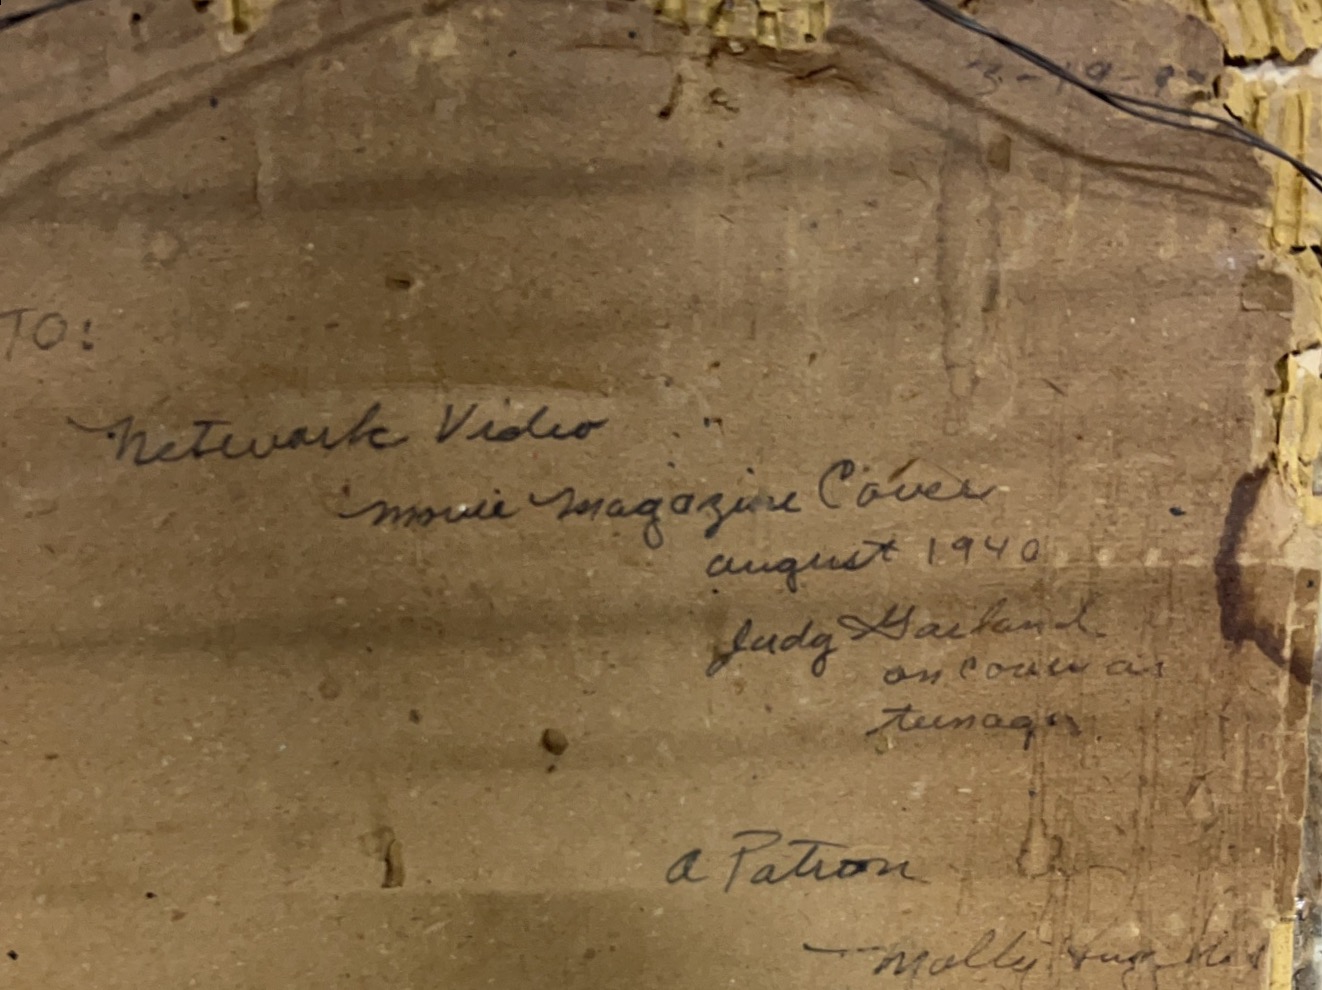 3-19-
TO:
Network Video
movie magazine Cover
august 1940
Judy Garland
on cover as
teenager
a Patron
Molly Hughes